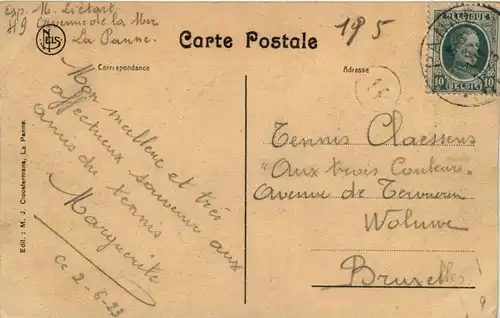 Exp. M. Liétart
49 Avenue de la Mer
La Panne.
NELS
Carte Postale
195
BELGIQUE
10 10
BELGIË
Correspondance
Adresse
Mon meilleur et très
affectueux souvenir aux
amis du tennis
Marguerite
ce 2-6-23
Tennis Claessens
"Aux trois Couleurs"
Avenue de Tervueren
Woluwe
Bruxelles
9
Edit.: M. J. Croostermans, La Panne.